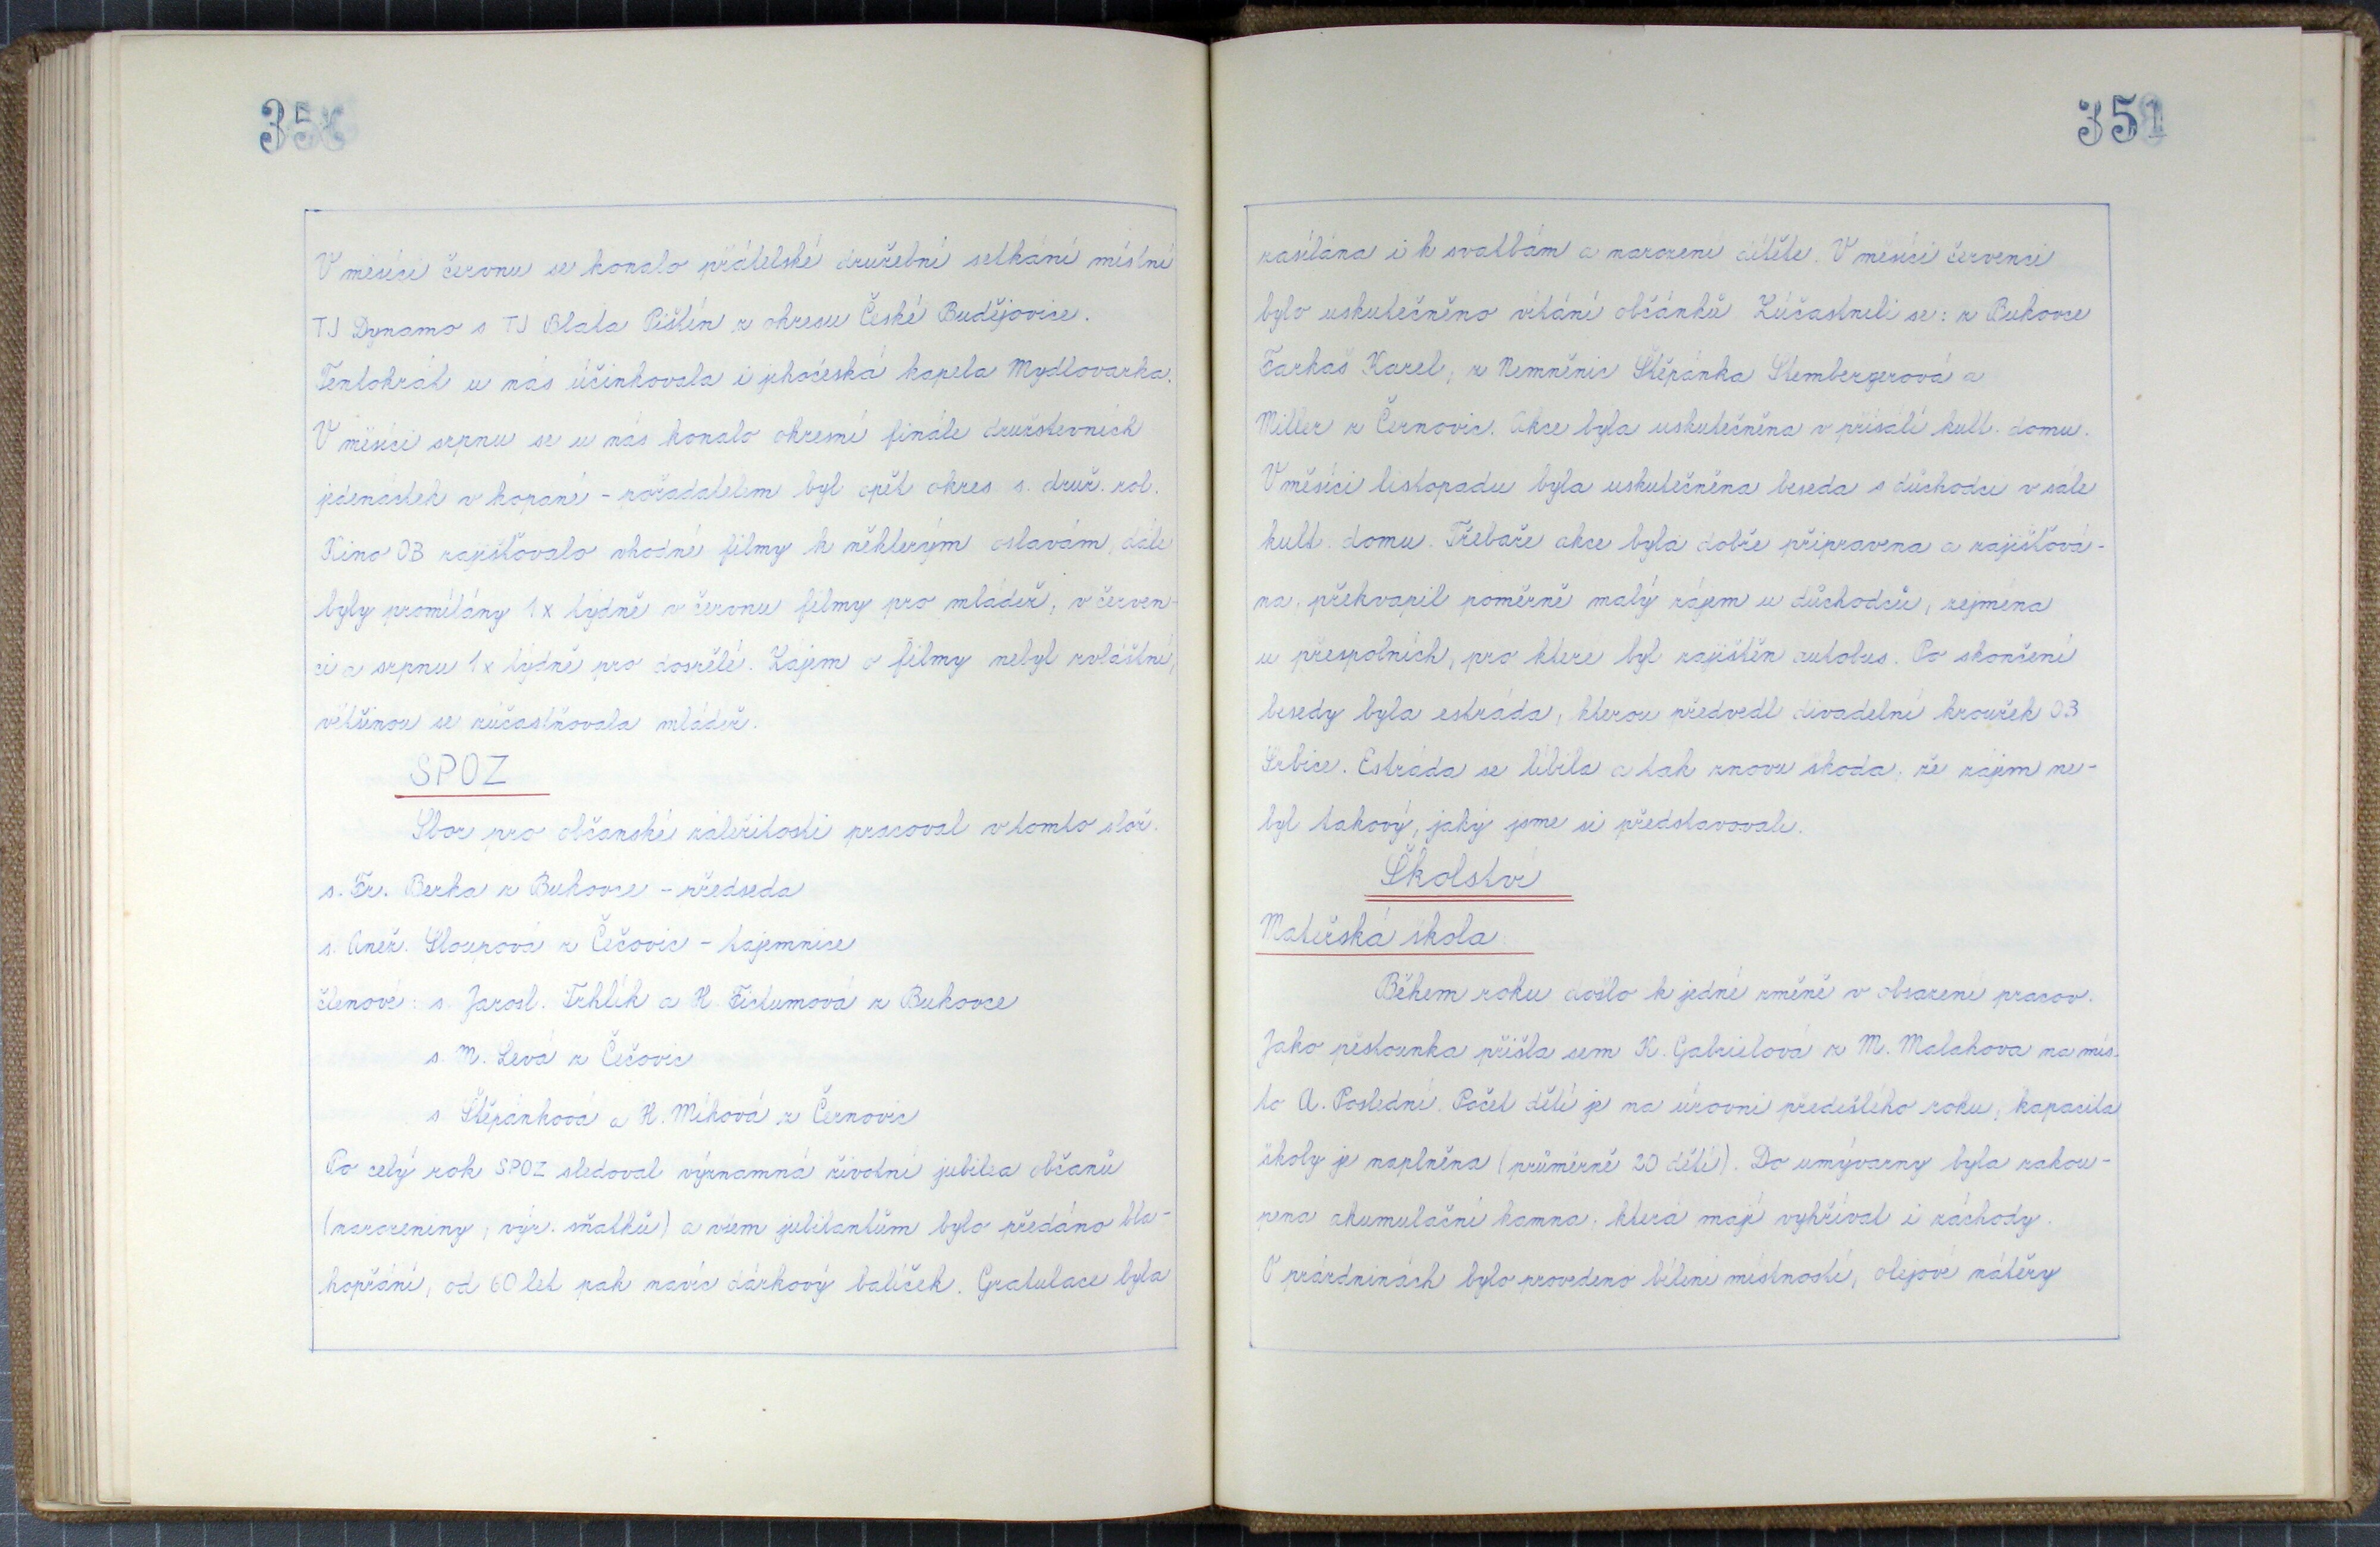 350
V měsíci červnu se konalo přátelské družební setkání místní
TJ Dynamo s TJ Blata Pištín z okresu České Budějovice.
Tentokrát u nás účinkovala i jihočeská kapela Mydlovarka.
V měsíci srpnu se u nás konalo okresní finále družstevních
jedenáctek v kopané - pořadatelem byl opět okres. s. druž. rol.
Kino OB zajišťovalo vhodné filmy k některým oslavám, dále
byly promítány 1x týdně v červnu filmy pro mládež, v červen-
ci a srpnu 1x týdně pro dospělé. Zájem o filmy nebyl zvláštní,
většinou se zúčastňovala mládež.
SPOZ
Sbor pro občanské záležitosti pracoval v tomto slož.
s. Fr. Berka z Bukovce - předseda
s. Anež. Sloupová z Čečovic - tajemnice
členové: s. Jarosl. Trhlík a H. Fictumová z Bukovce
s. M. Levá z Čečovic
s. Štěpánková a H. Míková z Černovic
Po celý rok SPOZ sledoval významná životní jubilea občanů
(narozeniny, výr. sňatků) a všem jubilantům bylo předáno bla-
hopřání, od 60 let pak navíc dárkový balíček. Gratulace byla
351
zasílána i k svatbám a narození dítěte. V měsíci červenci
bylo uskutečněno vítání občánků Zúčastnili se: z Bukovce
Farkaš Karel, z Nemněnic Štěpánka Stembergerová a
Miller z Černovic. Akce byla uskutečněna v přísálí kult. domu.
V měsíci listopadu byla uskutečněna beseda s důchodci v sále
kult. domu. Třebaže akce byla dobře připravena a zajišťová-
na, překvapil poměrně malý zájem u důchodců, zejména
u přespolních, pro které byl zajištěn autobus. Po skončení
besedy byla estráda, kterou předvedl divadelní kroužek OB
Srbice. Estráda se líbila a tak znovu škoda, že zájem ne-
byl takový, jaký jsme si představovali.
Školství
Mateřská škola:
Během roku došlo k jedné změně v obsazení pracov.
Jako pěstounka přišla sem K. Gabrielová z M. Malahova na mís-
to A. Poslední. Počet dětí je na úrovni předešlého roku, kapacita
školy je naplněna (průměrně 20 dětí). Do umývarny byla zakou-
pena akumulační kamna, která mají vyhřívat i záchody.
O prázdninách bylo provedeno bílení místností, olejové nátěry